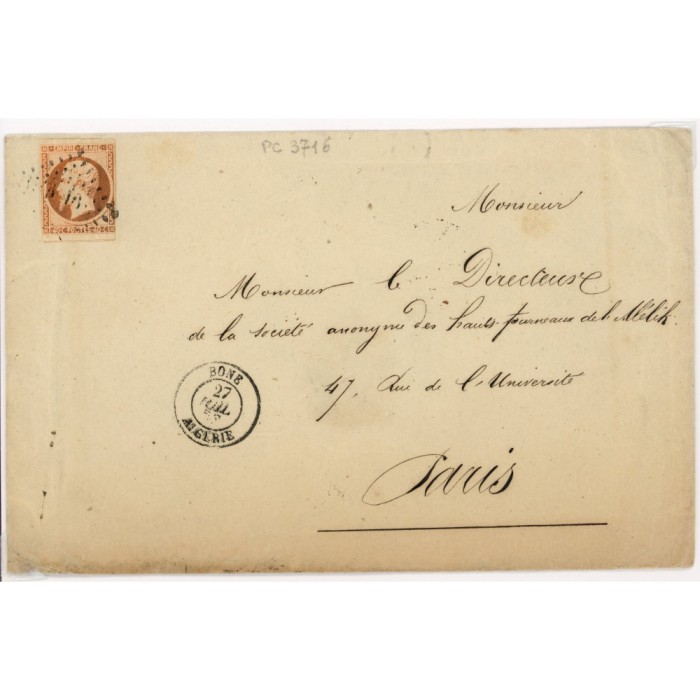 PC 3716
EMPIRE FRANC
40 C POSTES 40 C
Monsieur
Monsieur le Directeur
de la société anonyme des hauts-fourneaux de l'Alélik
47, Rue de l'Université
Paris
BONE
27
JUIL.
ALGERIE